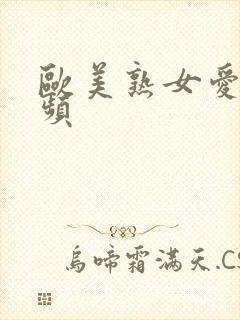 歐美熟女愛
頻
烏啼霜滿天.CS